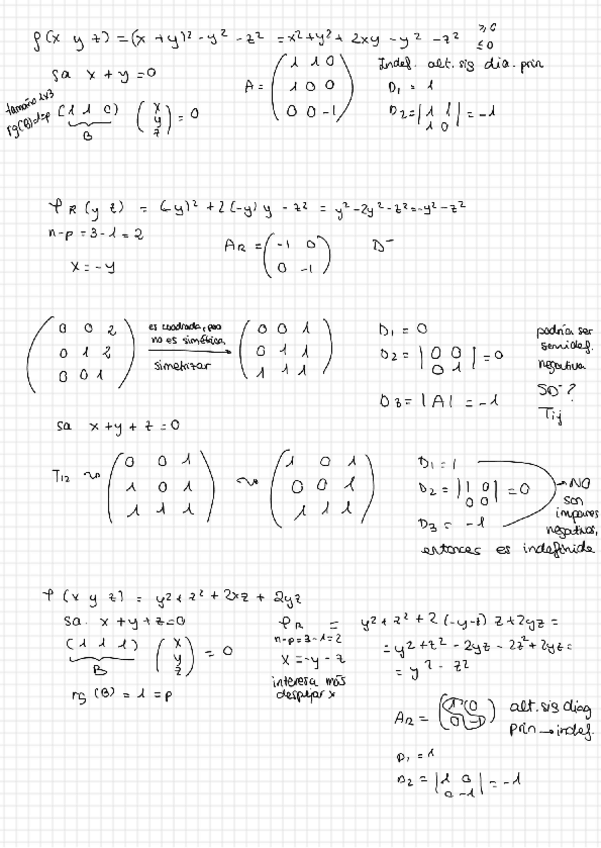 φ(x y z) = (x+y)² - y² - z² = x² + y² + 2xy - y² - z² ≥0 ≤0
sa x + y = 0
A = (1 1 0
1 0 0
0 0 -1)
Indef. alt. sig dia. prin
D₁ = 1
D₂ = |1 1
1 0| = -1
tamaño 1x3
rg(B)=1=p
(1 1 0) (x
y
z) = 0
B
φR (y z) = (-y)² + 2(-y)y - z² = y² - 2y² - z² = -y² - z²
n-p = 3-1 = 2
x = -y
AR = (-1 0
0 -1)
D⁻
(0 0 2
0 1 2
0 0 1)
es cuadrada, pero
no es simétrica
simetrizar
(0 0 1
0 1 1
1 1 1)
D₁ = 0
D₂ = |0 0
0 1| = 0
D₃ = |A| = -1
podría ser
semidef.
negativa
SD⁻?
Tij
sa x + y + z = 0
T₁₂ ~ (0 0 1
1 0 1
1 1 1)
~ (1 0 1
0 0 1
1 1 1)
D₁ = 1
D₂ = |1 0
0 0| = 0
D₃ = -1
→ NO
son
impares
negativos,
entonces es indefinida
φ (x y z) = y² + z² + 2xz + 2yz
sa. x + y + z = 0
(1 1 1) (x
y
z) = 0
B
rg (B) = 1 = p
φR = y² + z² + 2(-y-z) z + 2yz =
n-p = 3-1 = 2
x = -y - z
interesa más
despejar x
= y² + z² - 2yz - 2z² + 2yz =
= y² - z²
AR = (1 0
0 -1)
alt. sig diag
prin → indef.
D₁ = 1
D₂ = |1 0
0 -1| = -1